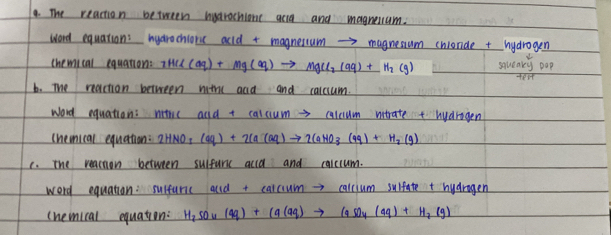 a. The reaction between hydrochloric acid and magnesium.
Word equation: hydrochloric acid + magnesium → magnesium chloride + hydrogen
↓
Chemical equation: 2HCl (aq) + Mg (aq) → MgCl₂ (aq) + H₂ (g) squeaky pop
test
b. The reaction between nitric acid and calcium.
Word equation: nitric acid + calcium → calcium nitrate + hydrogen
Chemical equation: 2HNO₃ (aq) + 2Ca (aq) → 2CaNO₃ (aq) + H₂ (g)
c. The reaction between sulfuric acid and calcium.
Word equation: sulfuric acid + calcium → calcium sulfate + hydrogen
Chemical equation: H₂SO₄ (aq) + Ca (aq) → CaSO₄ (aq) + H₂ (g)